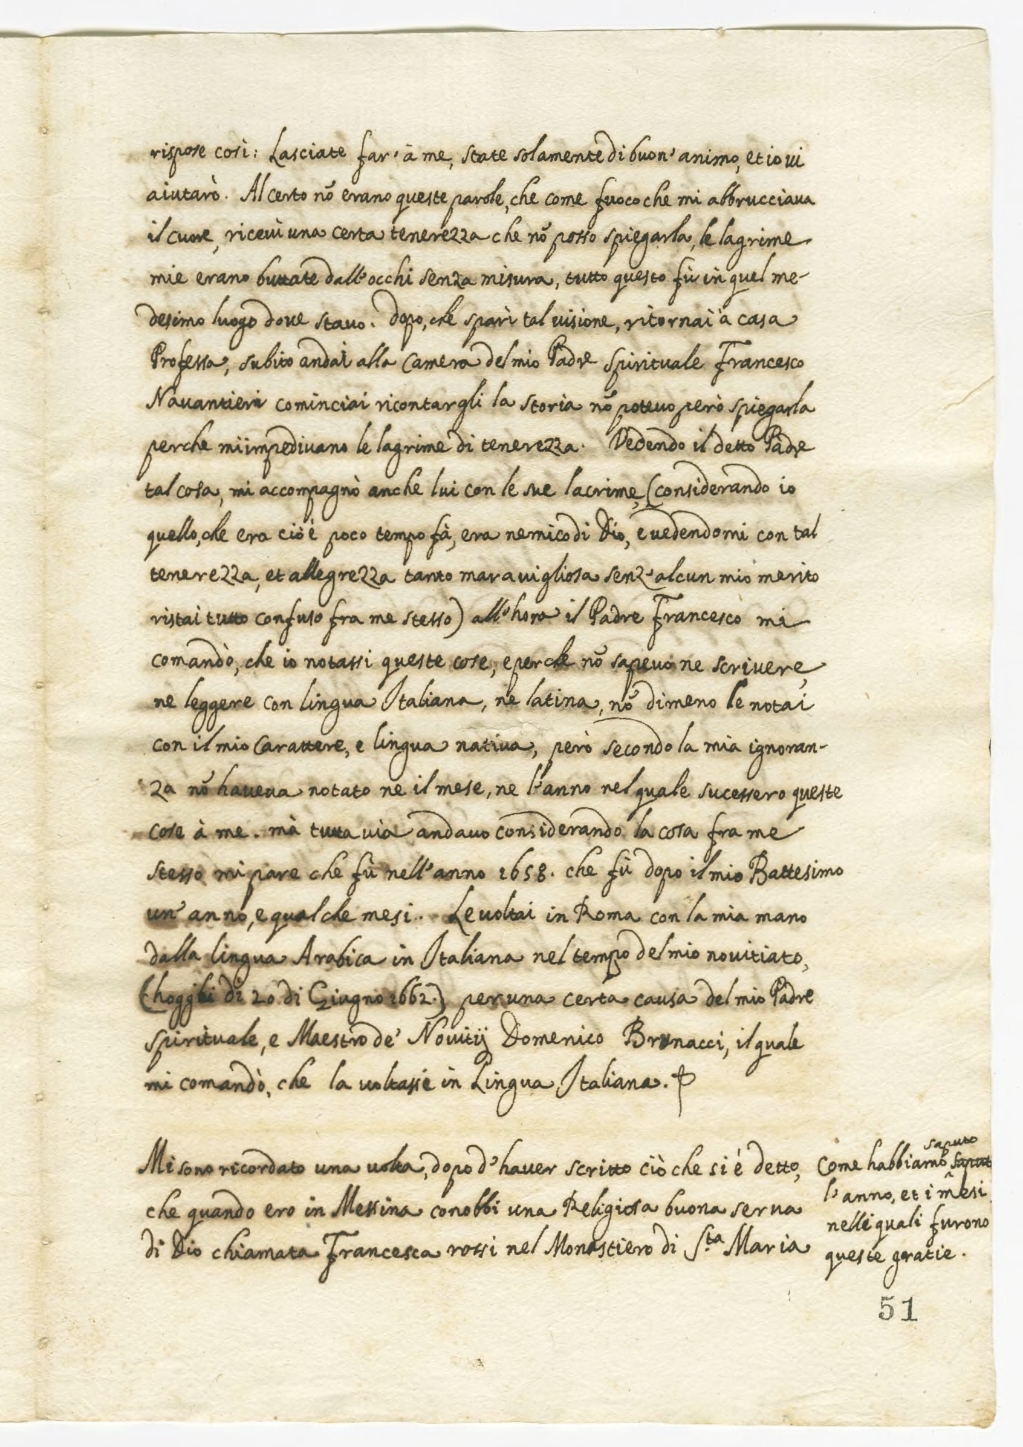 rispose così: Lasciate far' à me, state solamente di buon' animo, et io vi
aiutarò. Al certo nõ erano queste parole, che come fuoco che mi abbrucciava
il cuore, ricevei una certa tenerezza che nõ posso spiegarla, le lagrime
mie erano buttate dall'occhi senza misura, tutto questo fù in quel me-
desimo luogo dove stavo. dopo, che sparì tal visione, ritornai à casa
Professa, subito andai alla Camera del mio Padre Spirituale Francesco
Navantieri cominciai ricontargli la storia nõ potevo però spiegarla
perche mi impedivano le lagrime di tenerezza. Vedendo il detto Padre
tal cosa, mi accompagnò anche lui con le sue lacrime, (considerando io
quello, che era cioè poco tempo fà, era nemico di Dio, e vedendomi con tal
tenerezza, et allegrezza tanto maravigliosa senz' alcun mio merito
ristai tutto confuso fra me stesso) all'hora il Padre Francesco mi
comandò, che io notassi queste cose, e perche nõ sapevo ne scrivere,
ne leggere con lingua Italiana, ne latina, nõ dimeno le notai
con il mio Carattere, e lingua nativa, però secondo la mia ignoran-
za nõ haveva notato ne il mese, ne l'anno nel quale sucessero queste
cose à me. mà tutta via andavo considerando la cosa fra me
stesso mi pare che fù nell'anno 1658. che fù dopo il mio Battesimo
un' anno, e qualche mesi. Le voltai in Roma con la mia mano
dalla lingua Arabica in Italiana nel tempo del mio novitiato,
(hoggi di 20 di Giugno 1662.) per una certa causa del mio Padre
spirituale, e Maestro de' Novitij Domenico Brunacci, il quale
mi comandò, che la voltassi in Lingua Italiana.
Mi sono ricordato una volta, dopo d'haver scritto ciò che si è detto,
che quando ero in Messina conobbi una Religiosa buona serva
di Dio chiamata Francesca rossi nel Monastiero di S.ta Maria
saputo
Come habbiamo
l'anno, et i mesi
nelli quali furono
queste gratie.
51